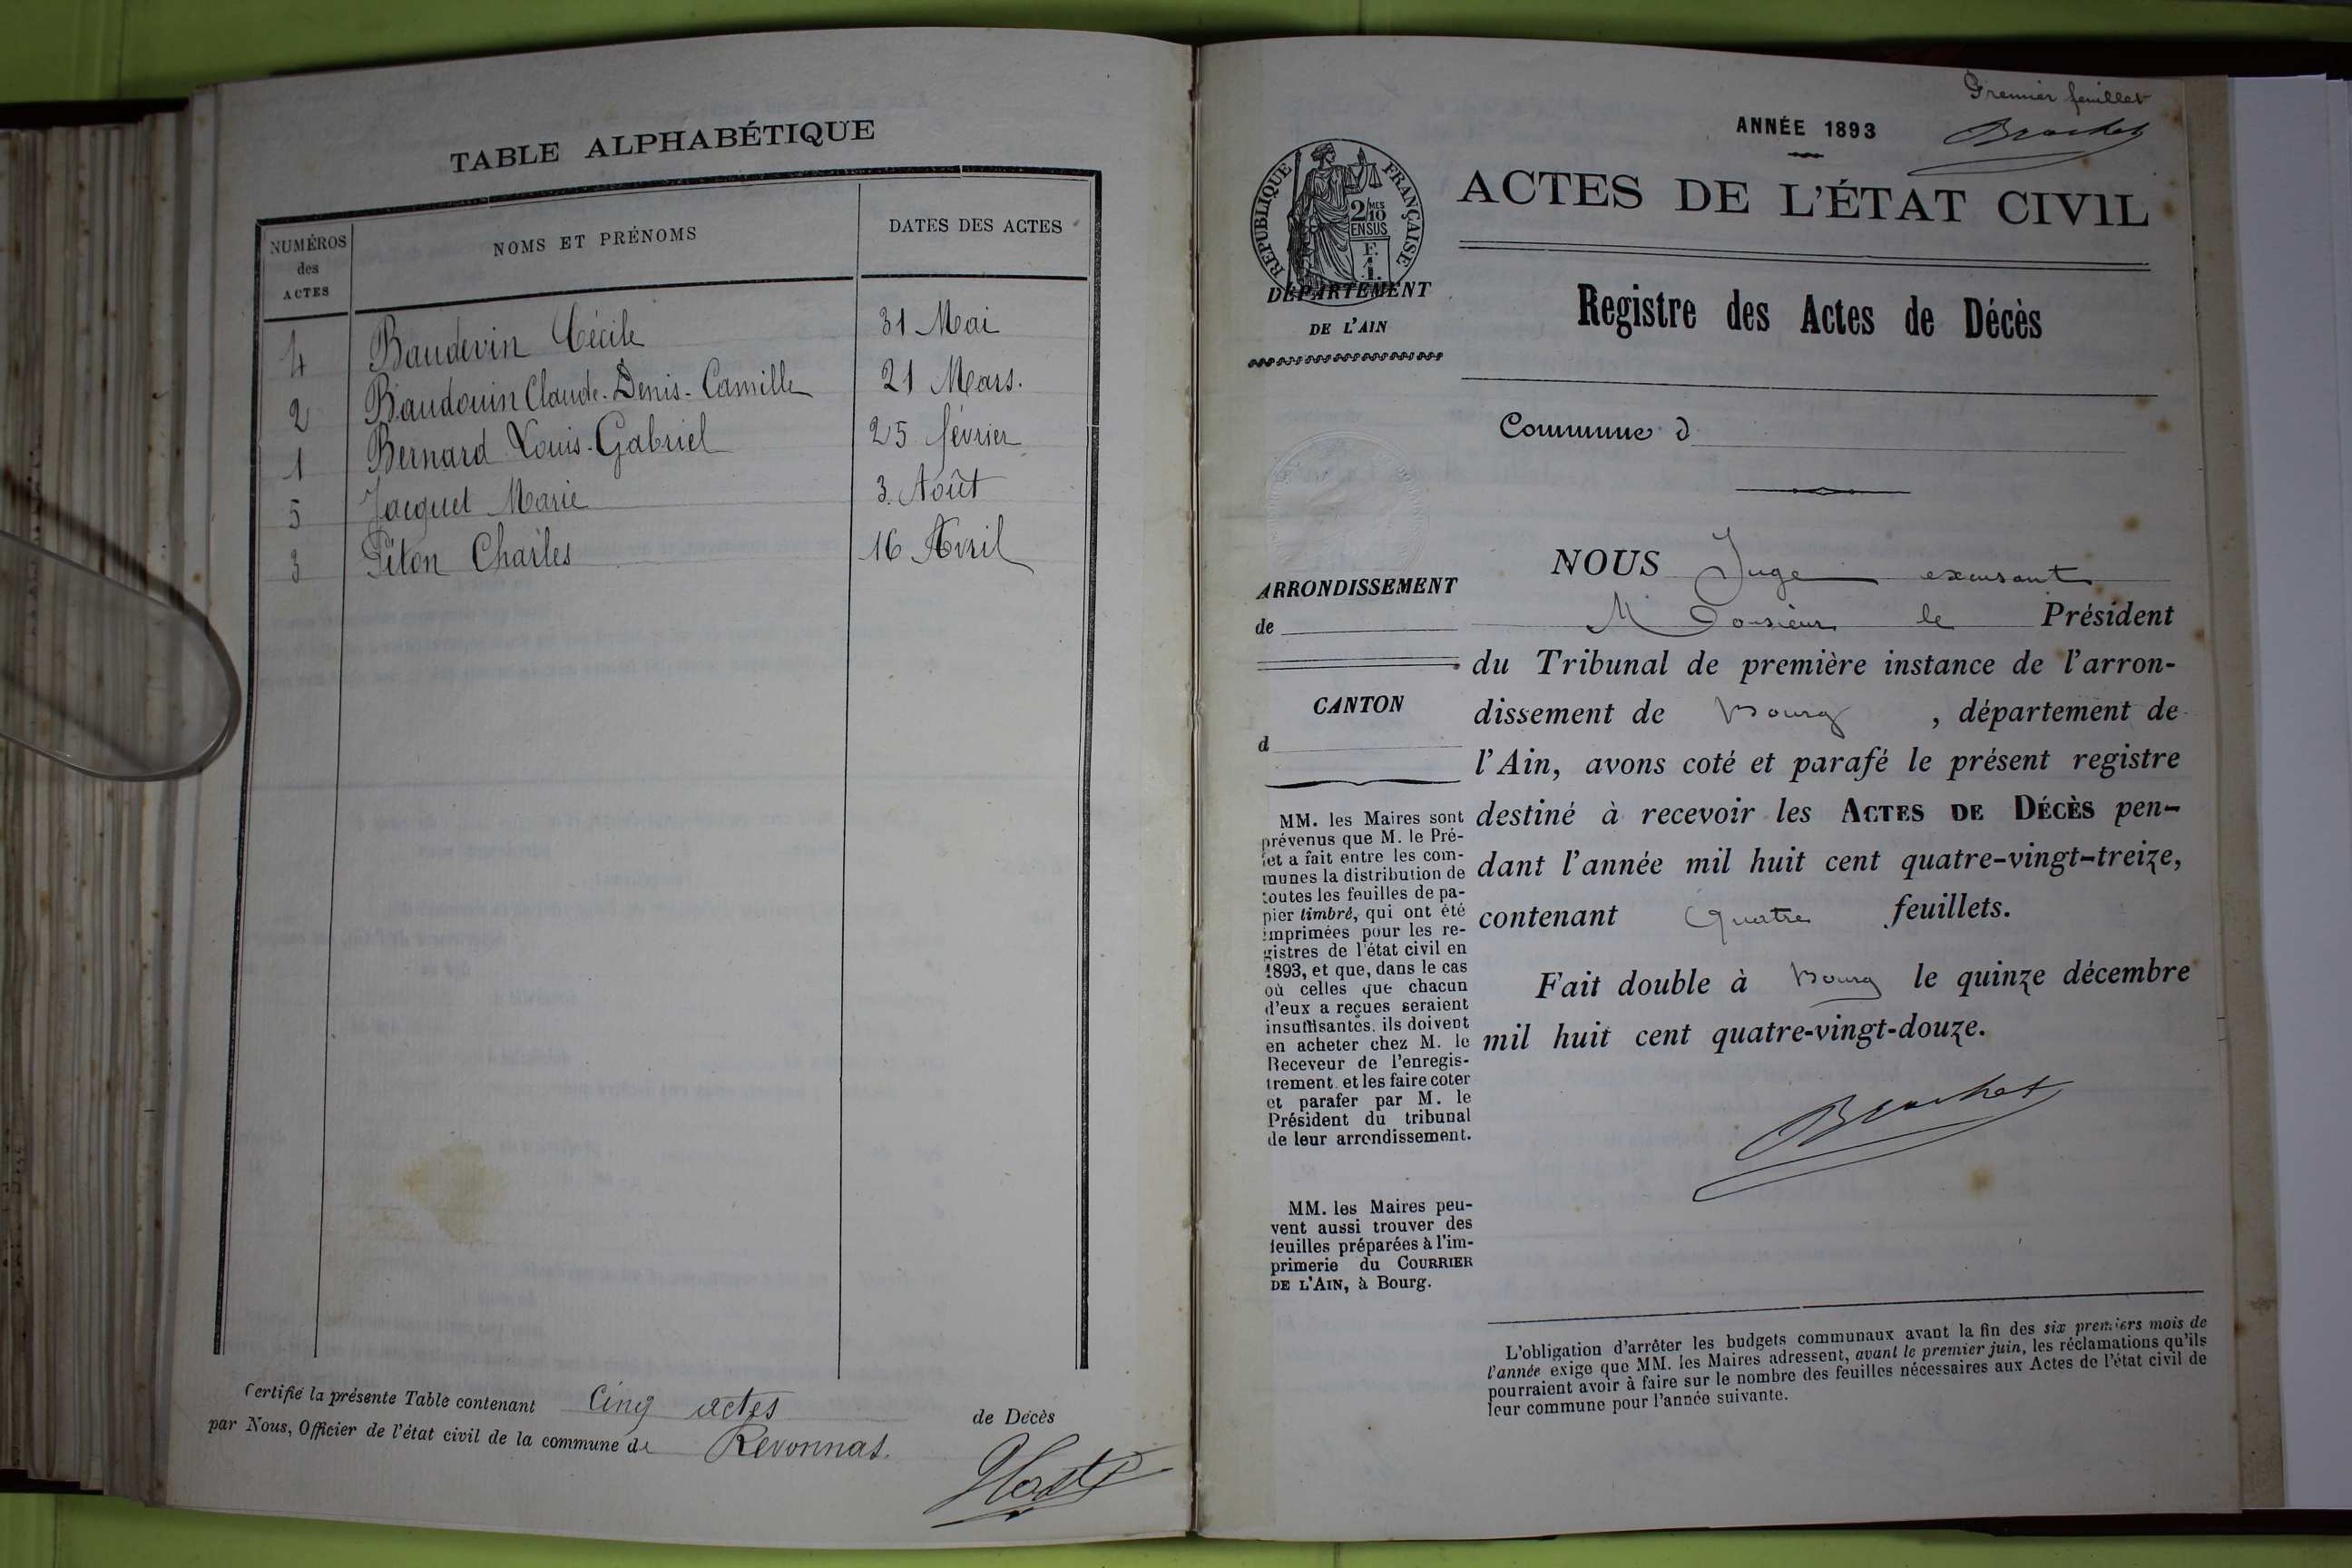 TABLE ALPHABÉTIQUE
NUMÉROS
des
ACTES
NOMS ET PRÉNOMS
DATES DES ACTES
4 Baudevin Cécile 31 Mai
2 Baudouin Claude-Denis-Camille 21 Mars.
1 Bernard Louis-Gabriel 25 février
5 Jacquet Marie 3 Août
3 Piton Charles 16 Avril
Certifié la présente Table contenant Cinq actes de Décès
par Nous, Officier de l'état civil de la commune de Revonnas.
Premier feuillet
Brochet
ANNÉE 1893
RÉPUBLIQUE FRANÇAISE
2/10 MES
EN SUS
F.
1.
ACTES DE L'ÉTAT CIVIL
DÉPARTEMENT
DE L'AIN
Registre des Actes de Décès
Commune d
ARRONDISSEMENT
de
CANTON
d
MM. les Maires sont
prévenus que M. le Pré-
fet a fait entre les com-
munes la distribution de
toutes les feuilles de pa-
pier timbré, qui ont été
imprimées pour les re-
gistres de l'état civil en
1893, et que, dans le cas
où celles que chacun
d'eux a reçues seraient
insuffisantes, ils doivent
en acheter chez M. le
Receveur de l'enregis-
trement, et les faire coter
et parafer par M. le
Président du tribunal
de leur arrondissement.
MM. les Maires peu-
vent aussi trouver des
feuilles préparées à l'im-
primerie du COURRIER
DE L'AIN, à Bourg.
NOUS Juge excusant
Monsieur le Président
du Tribunal de première instance de l'arron-
dissement de Bourg, département de
l'Ain, avons coté et parafé le présent registre
destiné à recevoir les ACTES DE DÉCÈS pen-
dant l'année mil huit cent quatre-vingt-treize,
contenant Quatre feuillets.
Fait double à Bourg le quinze décembre
mil huit cent quatre-vingt-douze.
Brochet
L'obligation d'arrêter les budgets communaux avant la fin des six premiers mois de
l'année exige que MM. les Maires adressent, avant le premier juin, les réclamations qu'ils
pourraient avoir à faire sur le nombre des feuilles nécessaires aux Actes de l'état civil de
leur commune pour l'année suivante.